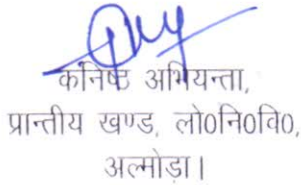 कनिष्ठ अभियन्ता,
प्रान्तीय खण्ड, लो०नि०वि०,
अल्मोड़ा।